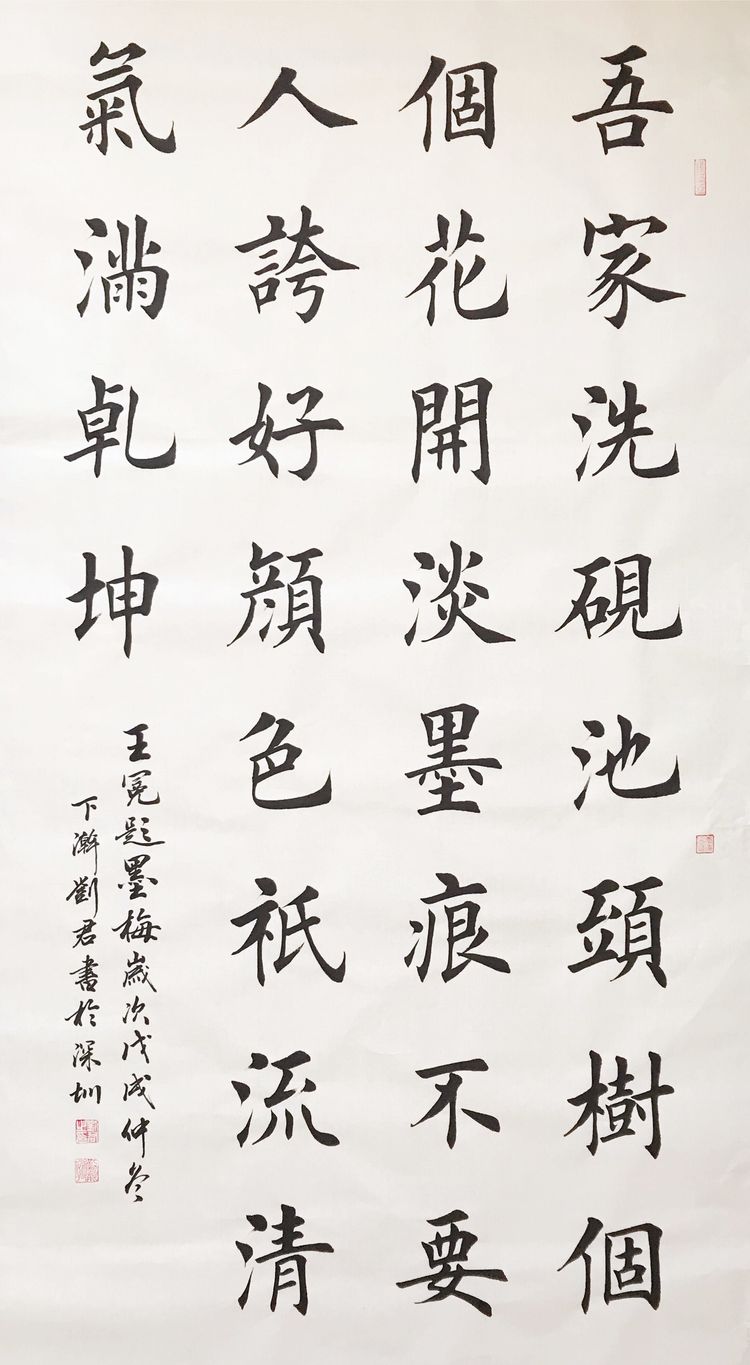 吾家洗硯池頭樹個
個花開淡墨痕不要
人誇好顏色祇流清
氣滿乾坤
王冕題墨梅歲次戊戌仲冬
下瀚劉君書於深圳